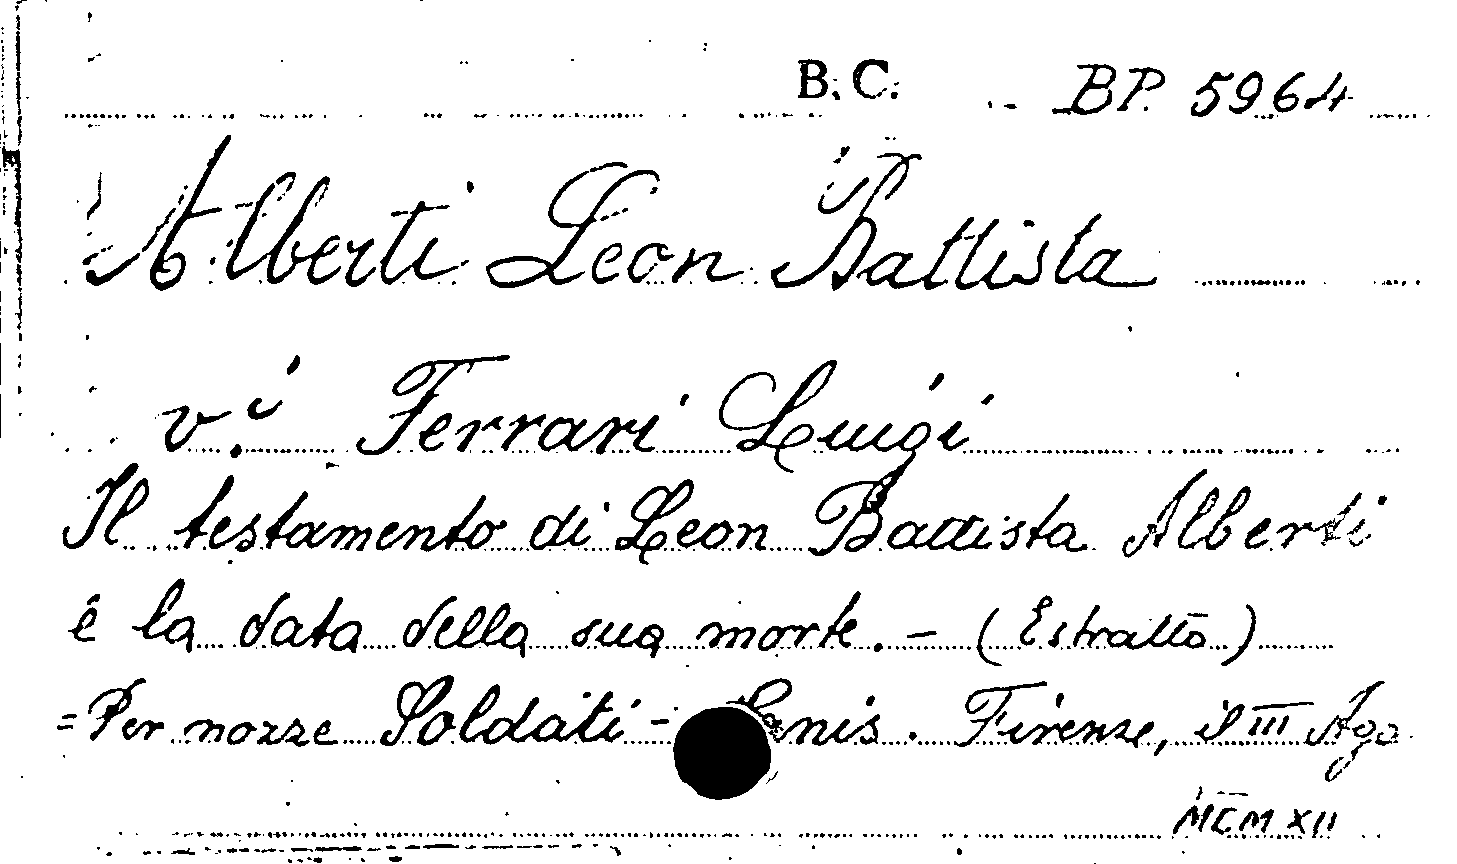 B. C. BP. 5964
Alberti Leon Battista
v.i Ferrari Luigi
Il testamento di Leon Battista Alberti
e la data della sua morte. - (Estratto)
= Per nozze Soldati - Firenze, il III Ago
MCMXII